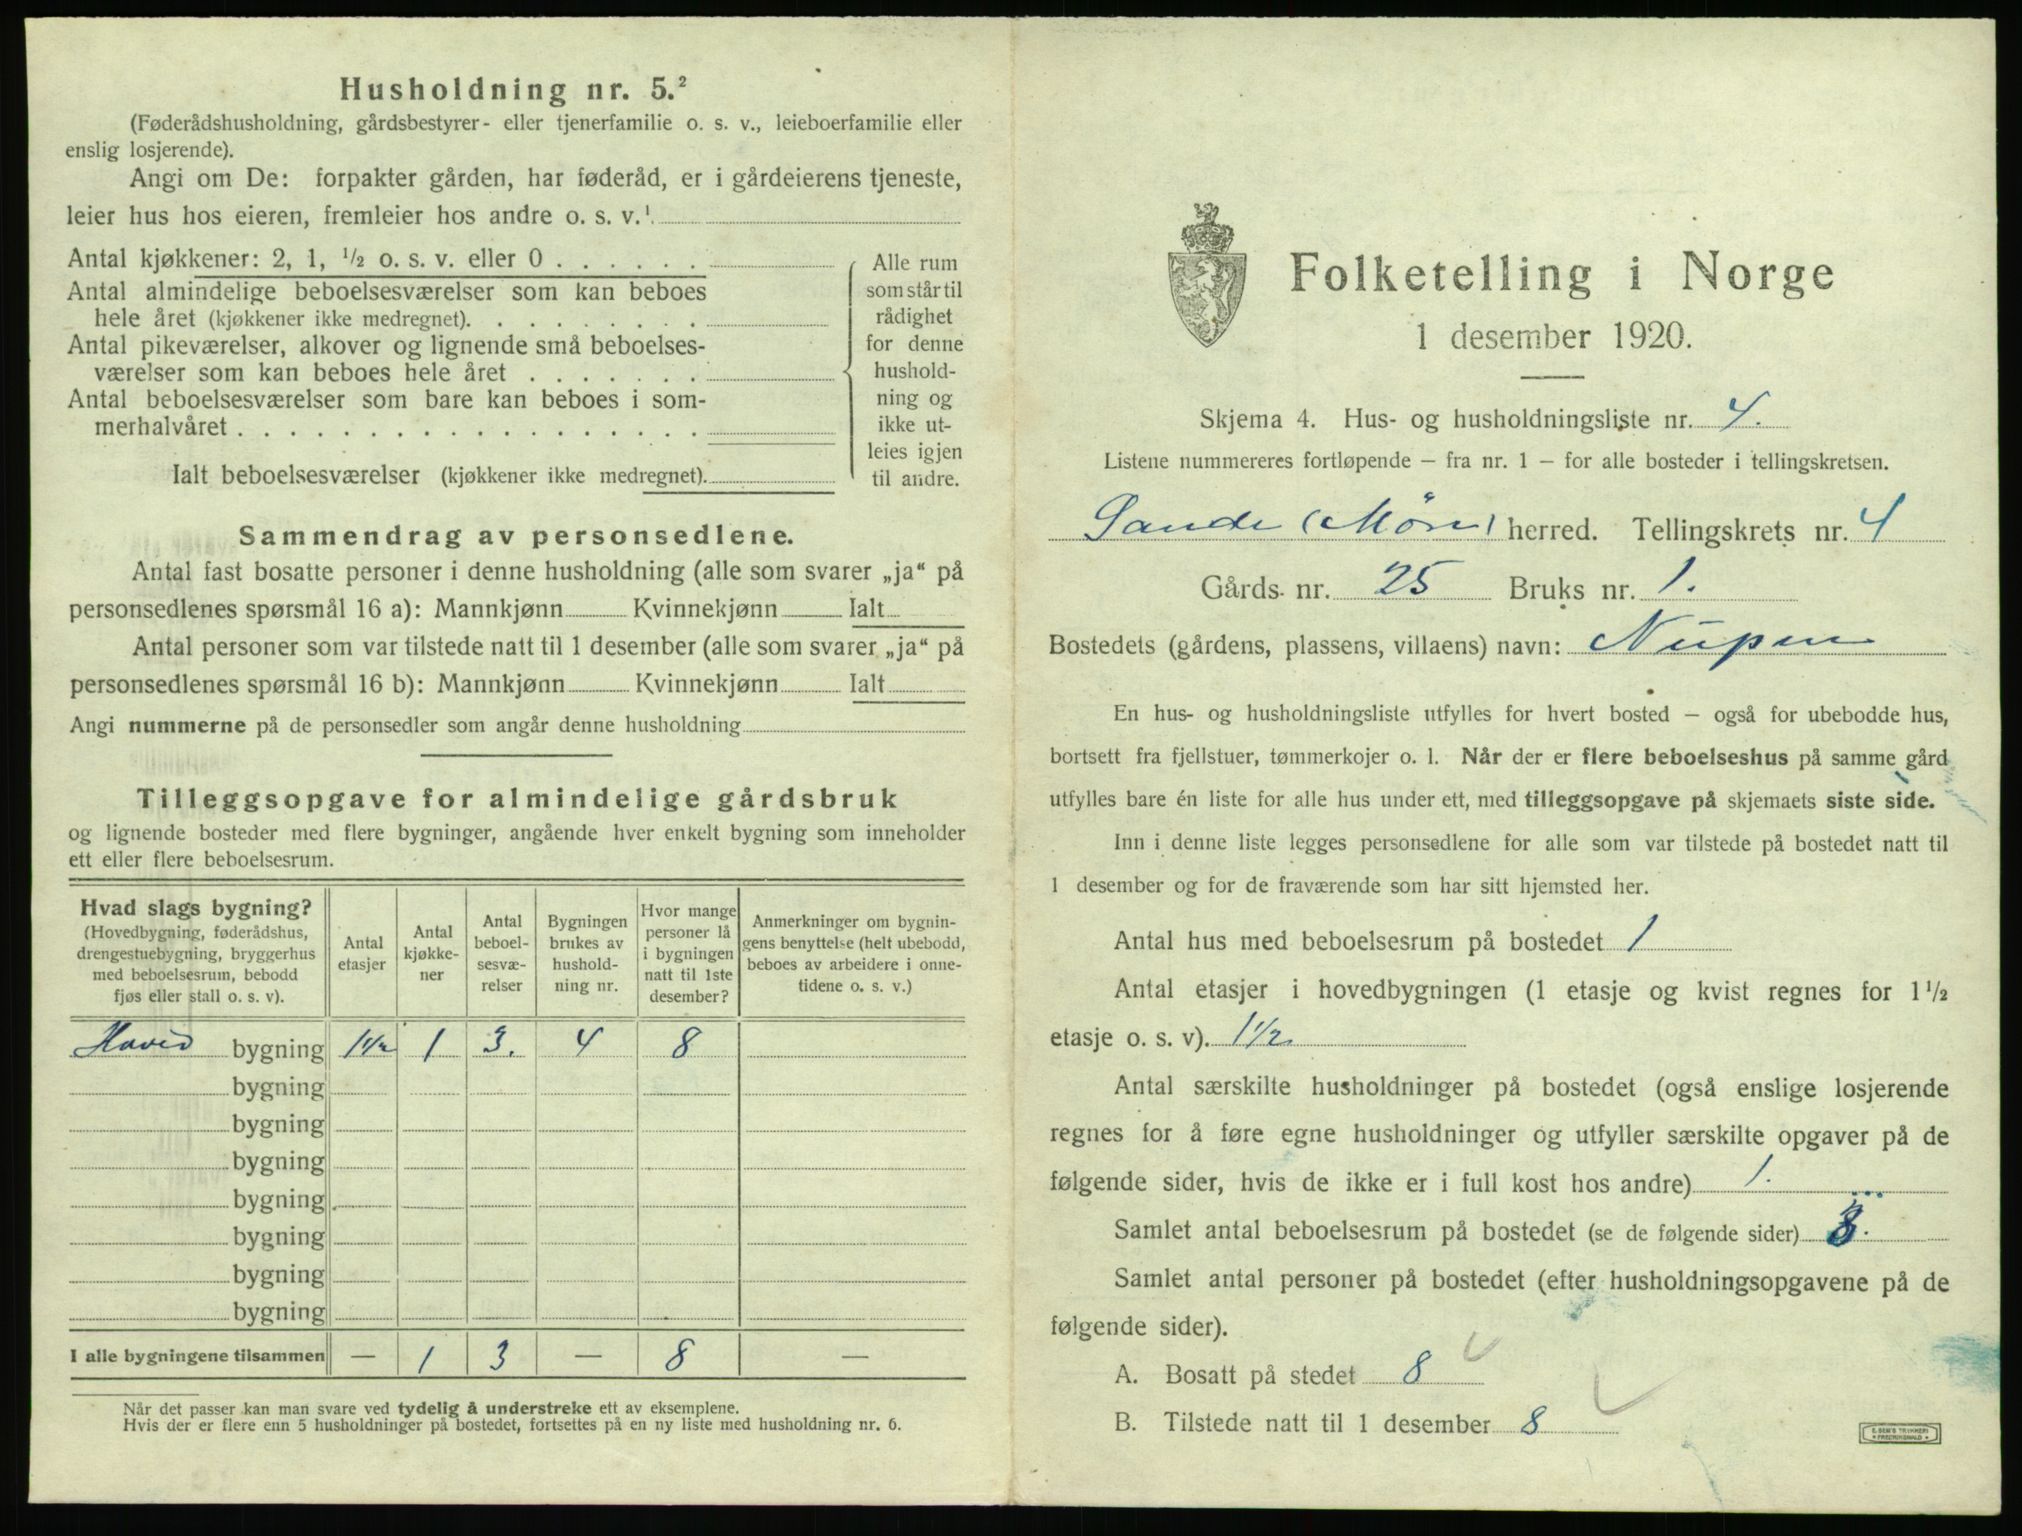 Husholdning nr. 5.²
(Føderådshusholdning, gårdsbestyrer- eller tjenerfamilie o. s. v., leieboerfamilie eller
enslig losjerende).
Angi om De: forpakter gården, har føderåd, er i gårdeierens tjeneste,
leier hus hos eieren, fremleier hos andre o. s. v.¹
Antal kjøkkener: 2, 1, ½ o. s. v. eller 0 . . . . . .
Antal almindelige beboelsesværelser som kan beboes
hele året (kjøkkener ikke medregnet). . . . . . . . .
Antal pikeværelser, alkover og lignende små beboelses-
værelser som kan beboes hele året . . . . . . .
Antal beboelsesværelser som bare kan beboes i som-
merhalvåret . . . . . . . . . . . . . . . . . .
Ialt beboelsesværelser (kjøkkener ikke medregnet).
Alle rum
som står til
rådighet
for denne
hushold-
ning og
ikke ut-
leies igjen
til andre.
Sammendrag av personsedlene.
Antal fast bosatte personer i denne husholdning (alle som svarer „ja“ på
personsedlenes spørsmål 16 a): Mannkjønn Kvinnekjønn Ialt
Antal personer som var tilstede natt til 1 desember (alle som svarer „ja“ på
personsedlenes spørsmål 16 b): Mannkjønn Kvinnekjønn Ialt
Angi nummerne på de personsedler som angår denne husholdning
Tilleggsopgave for almindelige gårdsbruk
og lignende bosteder med flere bygninger, angående hver enkelt bygning som inneholder
ett eller flere beboelsesrum.
Hvad slags bygning?
(Hovedbygning, føderådshus,
drengestuebygning, bryggerhus
med beboelsesrum, bebodd
fjøs eller stall o. s. v).
Antal
etasjer
Antal
kjøkke-
ner
Antal
beboel-
sesvæ-
relser
Bygningen
brukes av
hushold-
ning nr.
Hvor mange
personer lå
i bygningen
natt til 1ste
desember?
Anmerkninger om bygnin-
gens benyttelse (helt ubebodd,
beboes av arbeidere i onne-
tidene o. s. v.)
Hoved bygning 1½ 1 3. 4 8
bygning
bygning
bygning
bygning
bygning
bygning
bygning
I alle bygningene tilsammen — 1 3 — 8 —
Når det passer kan man svare ved tydelig å understreke ett av eksemplene.
Hvis der er flere enn 5 husholdninger på bostedet, fortsettes på en ny liste med husholdning nr. 6.
Folketelling i Norge
1 desember 1920.
Skjema 4. Hus- og husholdningsliste nr. 4.
Listene nummereres fortløpende — fra nr. 1 — for alle bosteder i tellingskretsen.
Sande (Möre) herred. Tellingskrets nr. 4
Gårds- nr. 25 Bruks nr. 1.
Bostedets (gårdens, plassens, villaens) navn: Nupen
En hus- og husholdningsliste utfylles for hvert bosted — også for ubebodde hus,
bortsett fra fjellstuer, tømmerkojer o. l. Når der er flere beboelseshus på samme gård
utfylles bare én liste for alle hus under ett, med tilleggsopgave på skjemaets siste side.
Inn i denne liste legges personsedlene for alle som var tilstede på bostedet natt til
1 desember og for de fraværende som har sitt hjemsted her.
Antal hus med beboelsesrum på bostedet 1
Antal etasjer i hovedbygningen (1 etasje og kvist regnes for 1½
etasje o. s. v). 1½
Antal særskilte husholdninger på bostedet (også enslige losjerende
regnes for å føre egne husholdninger og utfyller særskilte opgaver på de
følgende sider, hvis de ikke er i full kost hos andre) 1.
Samlet antal beboelsesrum på bostedet (se de følgende sider) 3.
Samlet antal personer på bostedet (efter husholdningsopgavene på de
følgende sider).
A. Bosatt på stedet 8
B. Tilstede natt til 1 desember 8
E. SEM'S TRYKKERI
FREDRIKSHALD